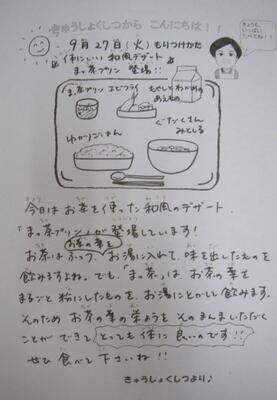 きゅうしょくしつから こんにちは！！
きょうも、
いっぱい
たべてね！！
9月27日（火）もりつけかた
体にいい 和風デザート
まっ茶プリン 登場！！
まっ茶プリン エビフライ もやしとわかめの
あえもの
ゆかりごはん
ぐだくさん
みそしる
今日は お茶を使った和風のデザート、
「まっ茶プリン」が登場しています！
お茶の葉を
お茶はふつう、お湯に入れて、味を出したものを
飲みますよね。でも、「まっ茶」は お茶の葉を
まるごと粉にしたものを、お湯にとかして飲みます。
そのため お茶の葉の栄ようを そのまんまいただく
ことができて とっても体に良いのです！！
ぜひ 食べて下さいね！！
きゅうしょくしつより♪